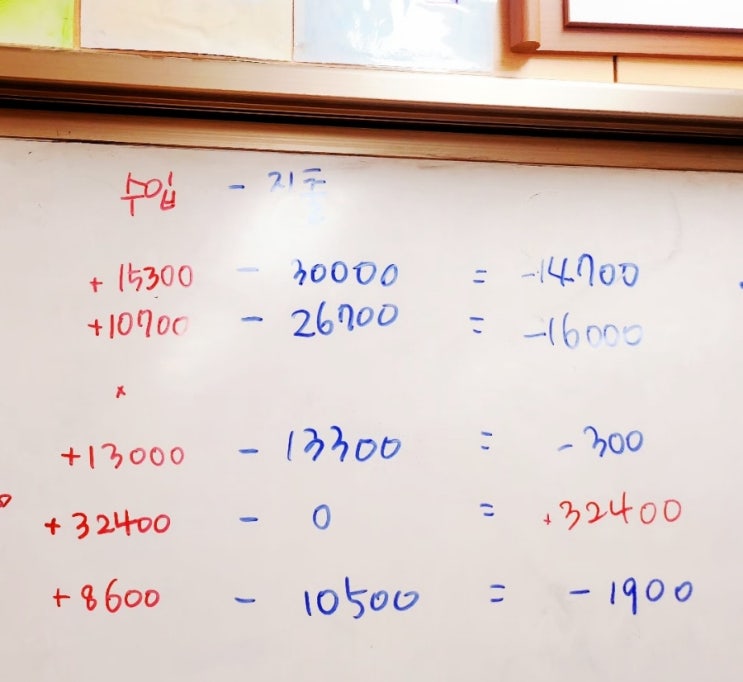 수입 - 지출
+15300 - 30000 = -14700
+10700 - 26700 = -16000
x
+13000 - 13300 = -300
+32400 - 0 = +32400
+8600 - 10500 = -1900